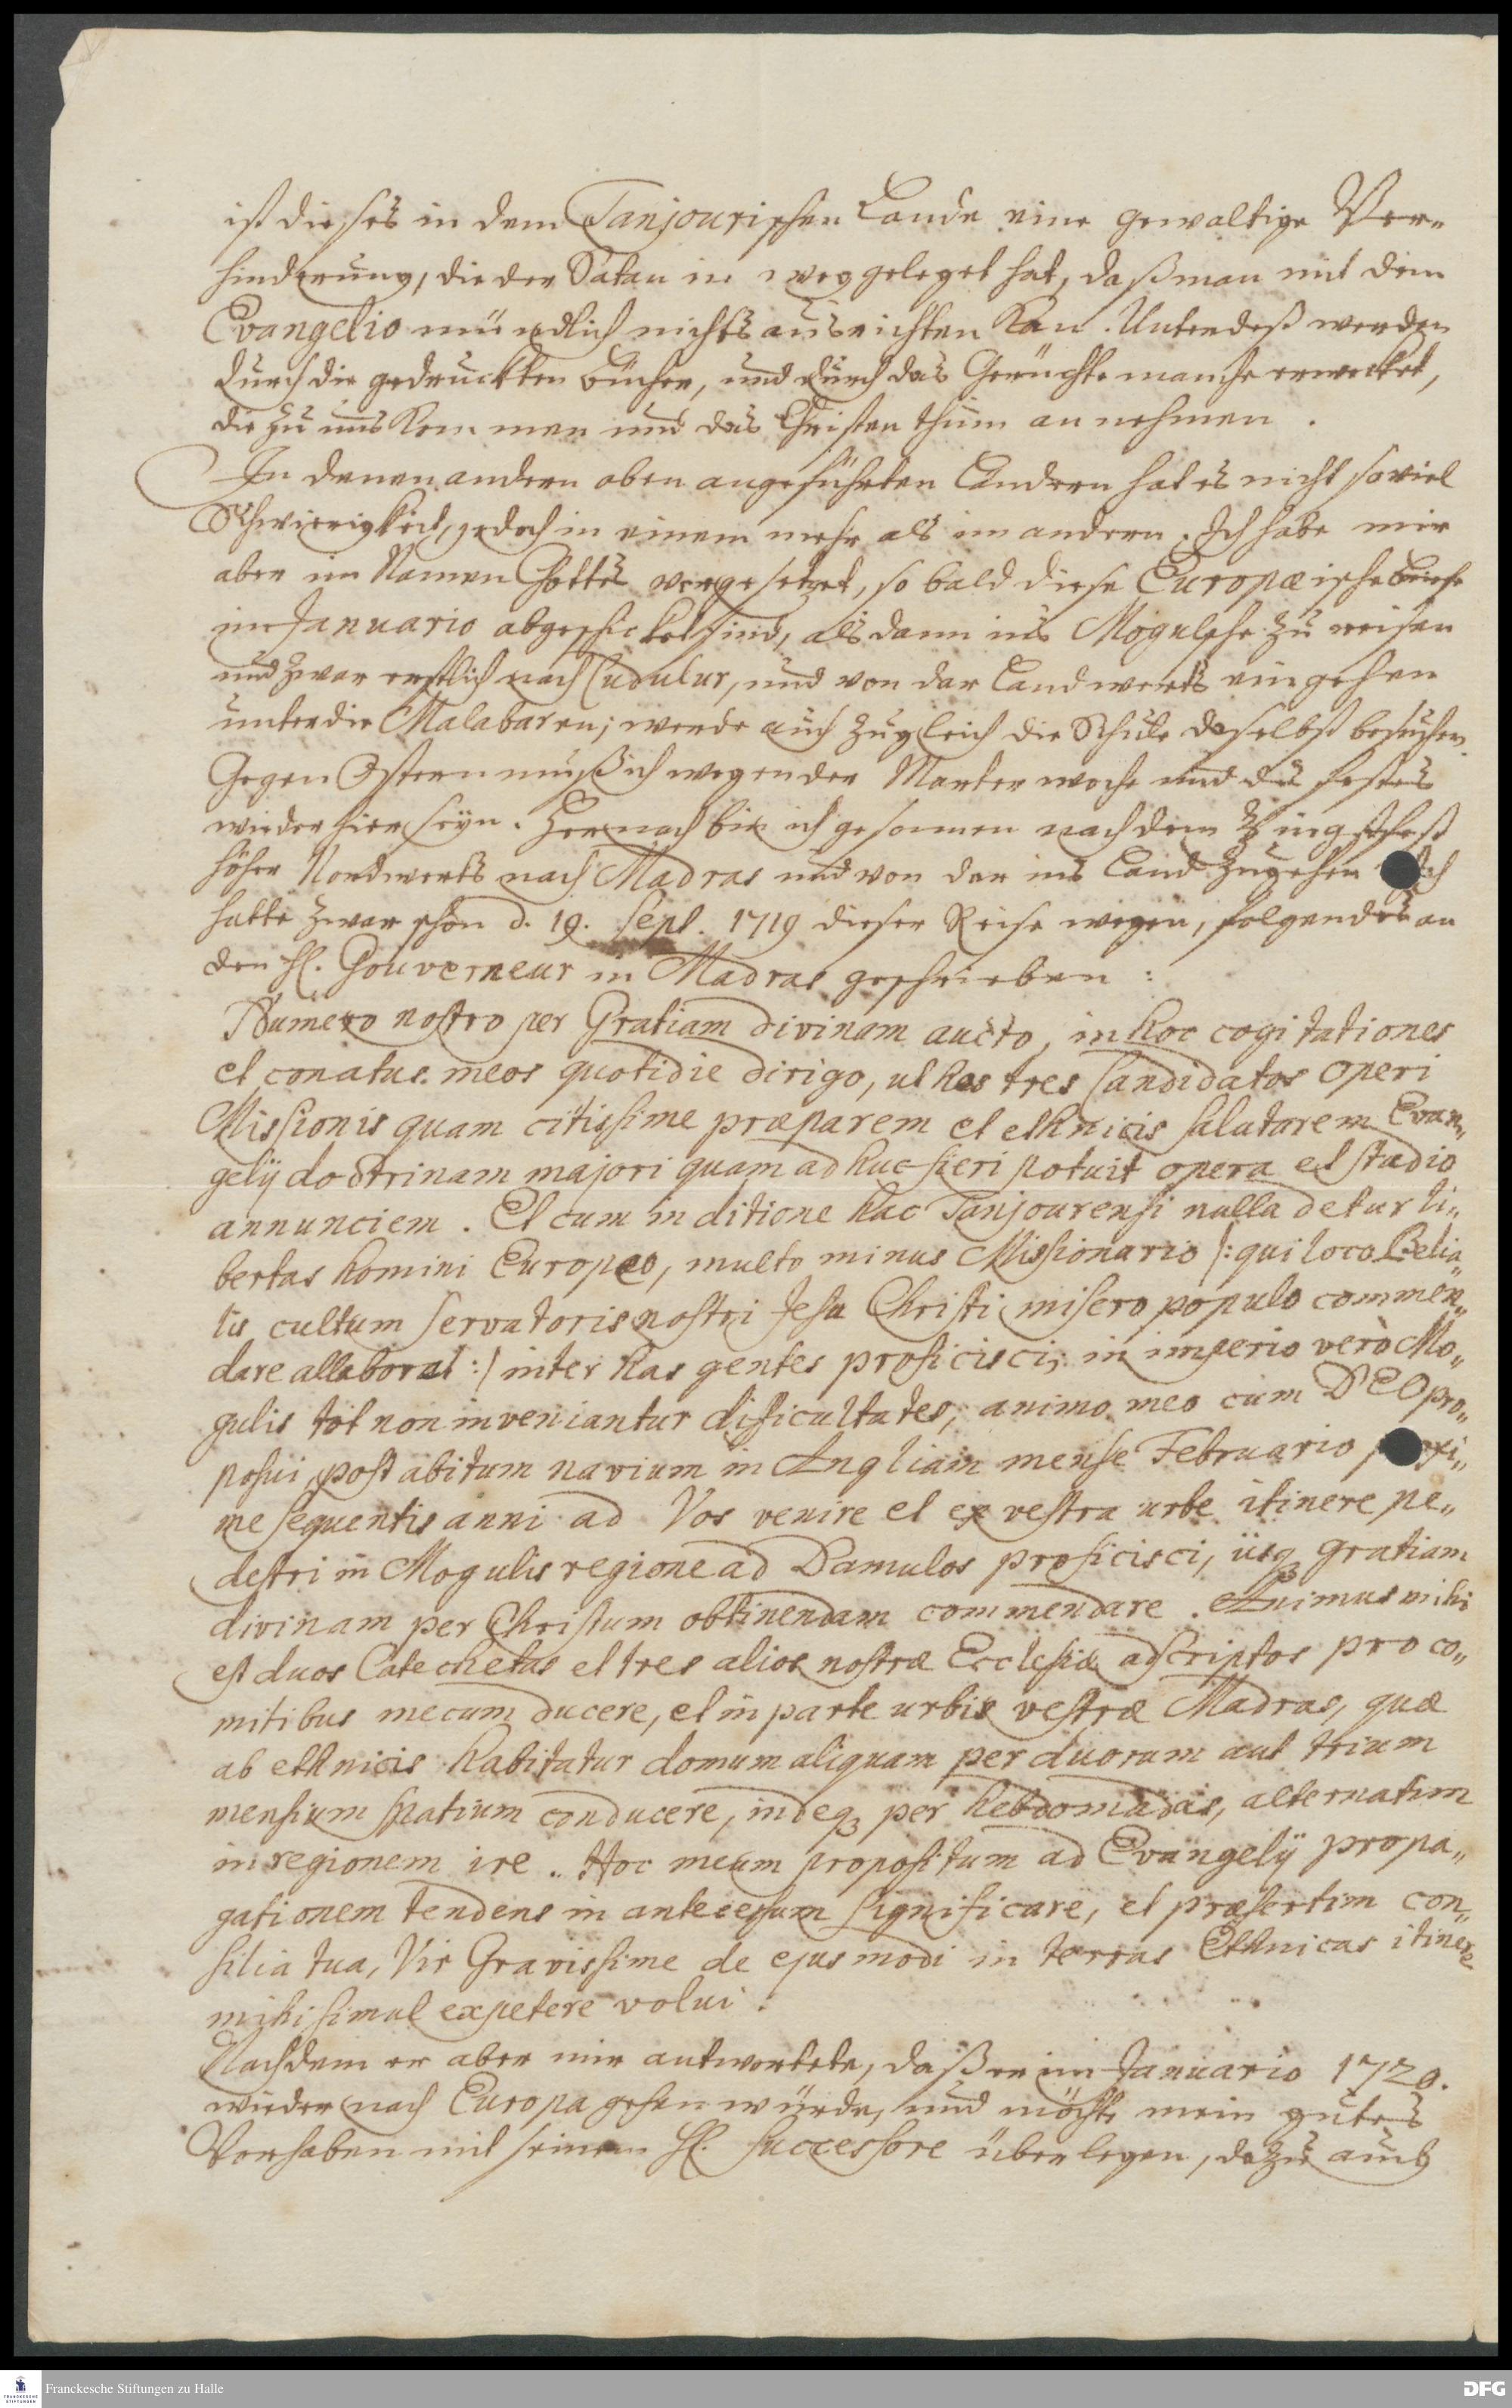 ist dieses in dem Tanjourischen Lande eine gewaltige Ver-
hinderung, die der Satan in weg geleget hat, daß man mit dem
Evangelio mündlich nichts ausrichten kan. Unterdeß werden
durch die gedruckten bücher, und durch das Gerüchte manche erwecket,
die zu uns kommen und das Christenthum annehmen.
In denen andern oben angeführten Ländern hat es nicht soviel
Schwierigkeit, jedoch in einem mehr als im andern. Ich habe mir
aber im Namen Gottes vorgesetzet, so bald diese Europæische briefe
im Januario abgeschicket sind, alsdann ins Mogulsche zu reisen
und zwar erstlich nach Cudulur, und von dar Landwerts eingehen
unter die Malabaren; werde auch zugleich die Schule daselbst besuchen.
Gegen Ostern muß ich wegen der Marterwoche und des festes
wieder hier seyn. Hernach bin ich gesonnen nach dem Pfingstfest
höher Nordwerts nach Madras und von dar ins Land zugehen. Ich
hatte zwar schon d. 19. Sept. 1719 dieser Reise wegen, folgendes an
den H. Gouverneur in Madras geschrieben:
Numero nostro per Gratiam divinam aucto, in hoc cogitationes
et conatus meos quotidie dirigo, ut hos tres Candidatos operi
Missionis quam citissime præparem et ethnicis salutarem Evan„
gelij doctrinam majori quam adhuc fieri potuit opera et studio
annunciem. Et cum in ditione hac Tanjourensi nulla detur li„
bertas homini Europeo, multo minus Missionario /: qui loco Belia„
lis cultum Servatoris nostri Jesu Christi misero populo commen„
dare allaborat :/ inter has gentes proficisci; in imperio verò Mo„
gulis tot non inveniantur dificultates; animo meo cum DEO pro„
posui, post abitum navium in Angliam mense Februario proxi„
me sequentis anni ad Vos venire et ex vestra urbe itinere pe„
destri in Mogulis regione ad Damulos proficisci, iisq; gratiam
divinam per Christum obtinendam commendare. Animus mihi
est duos Catechetas et tres alios nostræ Ecclesiæ adscriptos pro co„
mitibus mecum ducere, et in parte urbis vestræ Madras, quæ
ab ethnicis habitatur domum aliquam per duorum aut trium
mensium spatium conducere, indeq; per hebdomadas, alternatim
in regionem ire. Hoc meum propositum ad Evangelij propa„
gationem tendens in antecessum significare, et præsertim con„
silia tua, Vir Gravissime de ejusmodi in terras Ethnicas itinere
mihi simul expetere volui.
Nachdem er aber mir antwortete, daß er im Januario 1720.
wieder nach Europa gehen würde, und möchte mein gutes
Vorhaben mit seinem H. Successore überlegen, dazu auch
Franckesche Stiftungen zu Halle
DFG